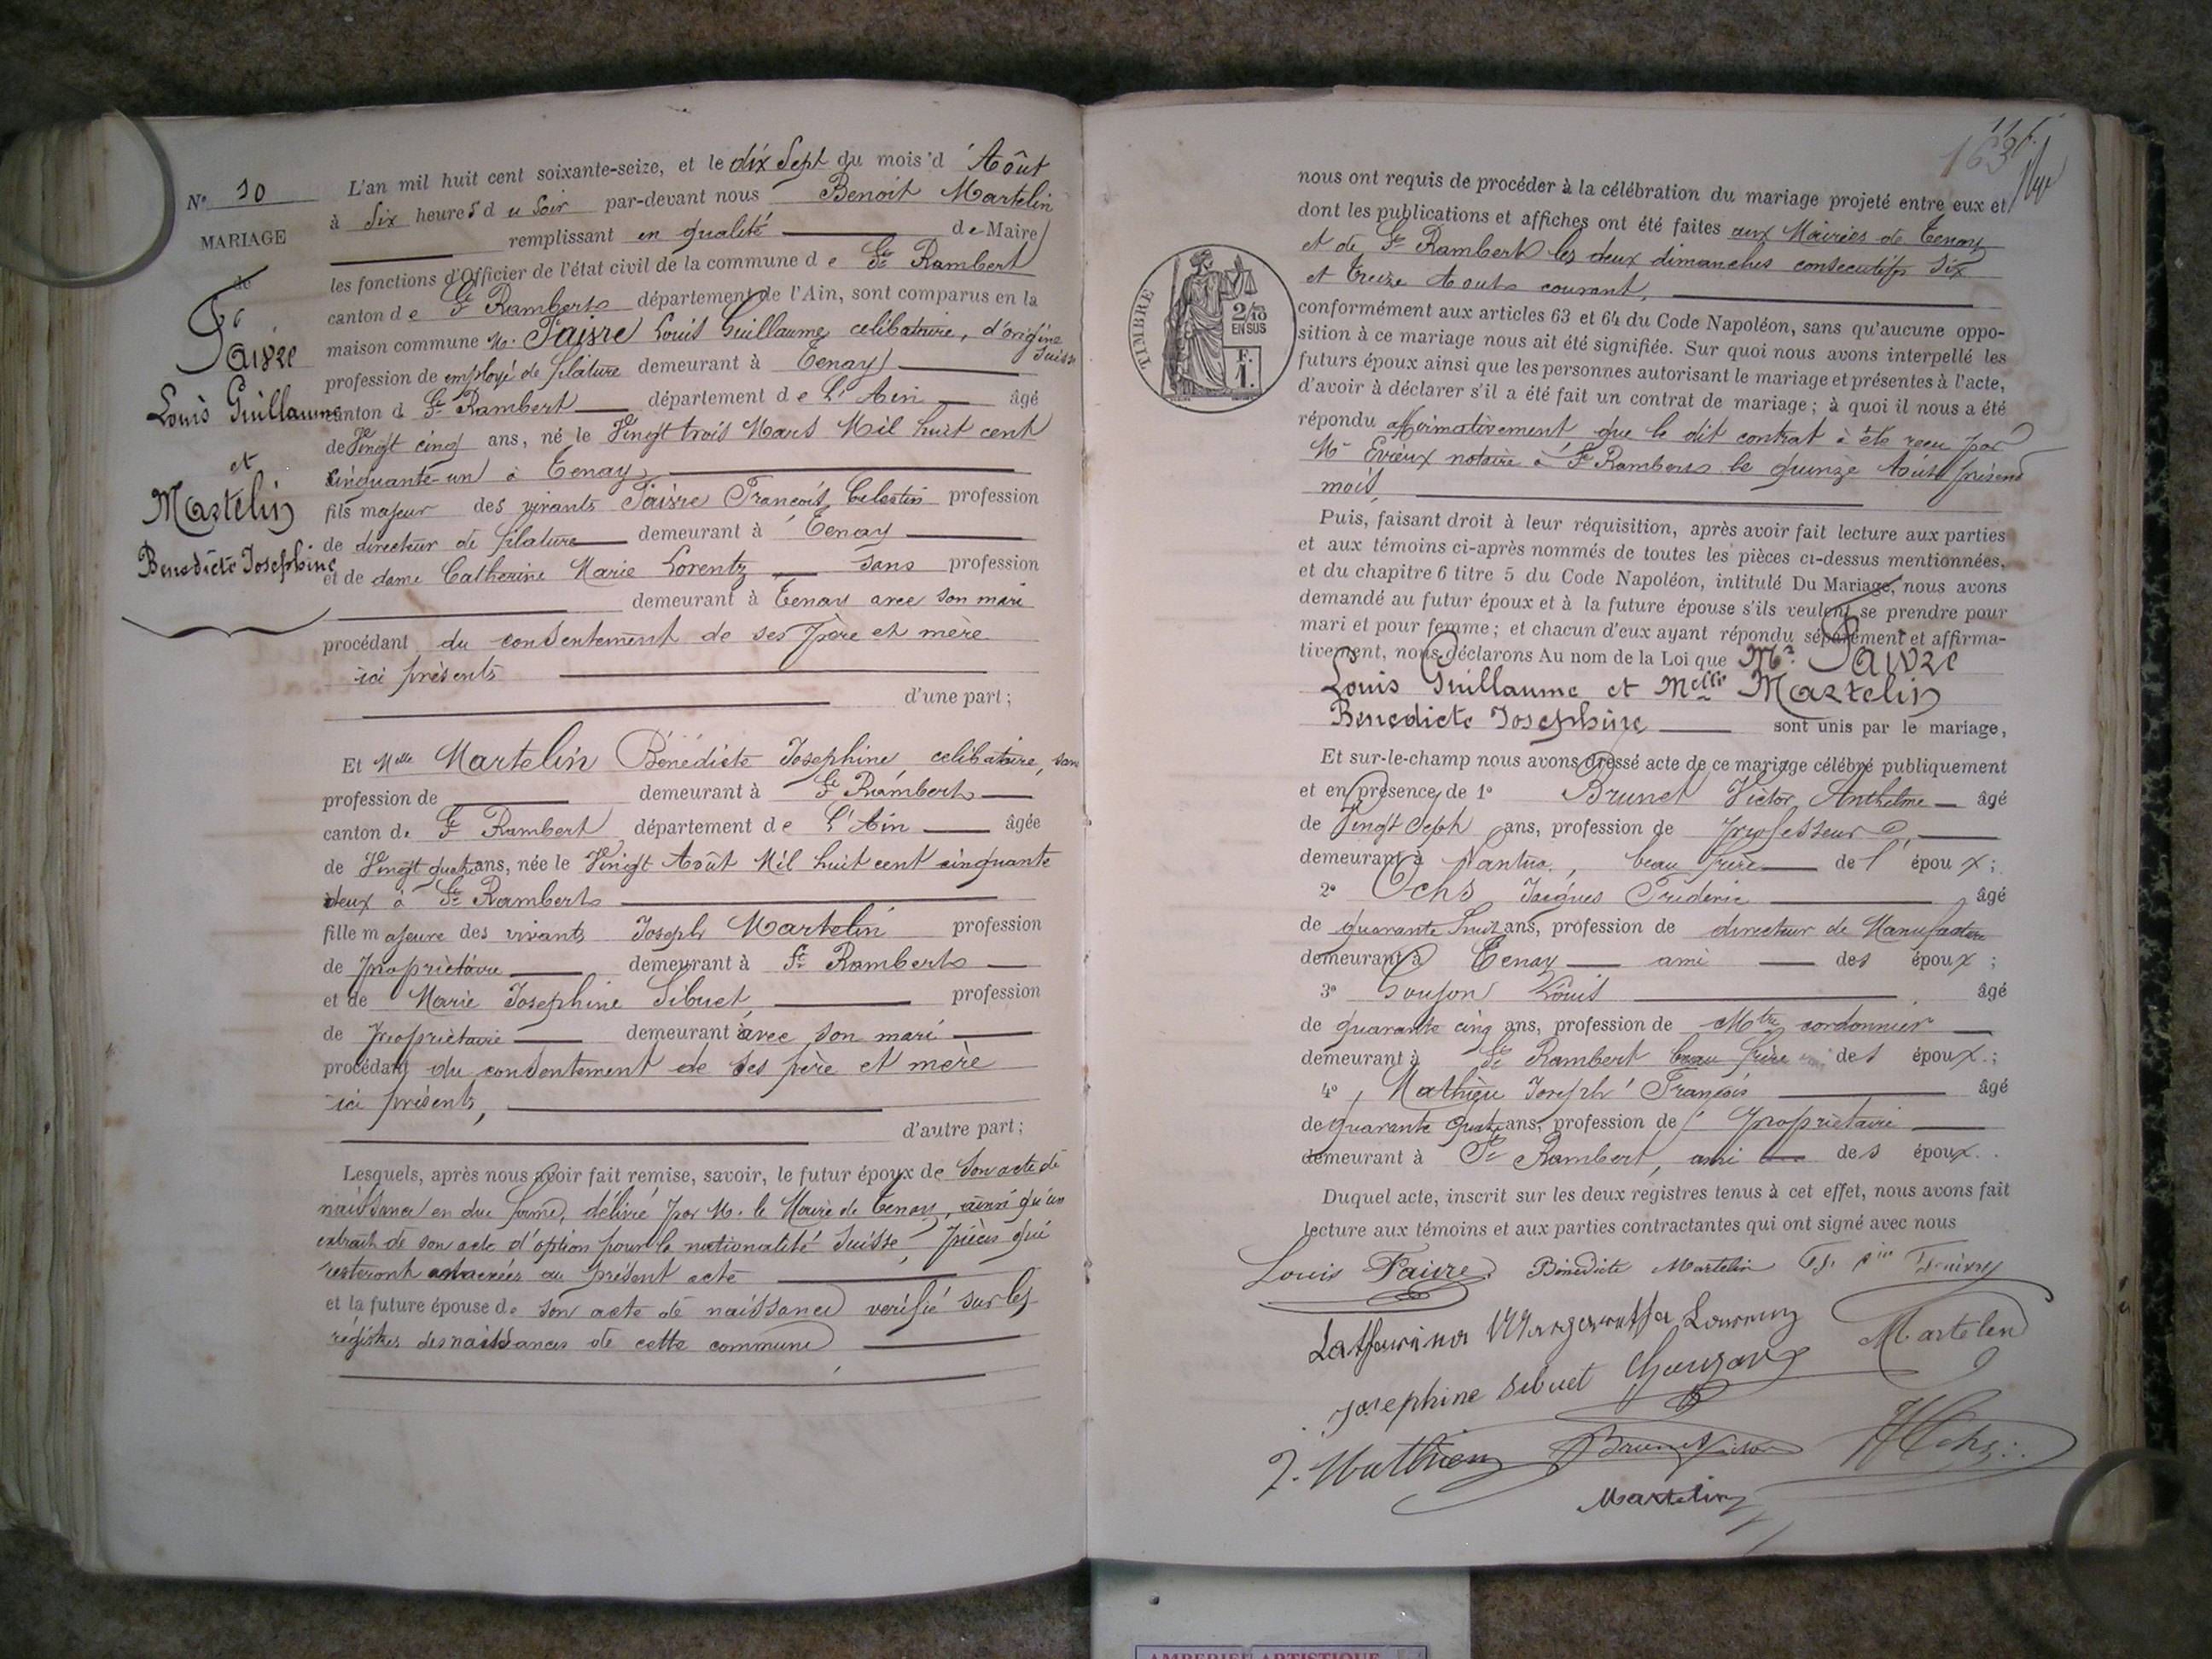 N° 10
MARIAGE
de
Faivre
Louis Guillaume
et
Martelin
Benedicte Josephine
L'an mil huit cent soixante-seize, et le dix Sept du mois d'Août
à Six heures du Soir par-devant nous Benoit Martelin
remplissant en qualité de Maire
les fonctions d'Officier de l'état civil de la commune de St Rambert
canton de St Rambert département de l'Ain, sont comparus en la
maison commune M. Faivre Louis Guillaume celibataire, d'origine Suisse
profession de employé de filature demeurant à Tenay
canton d St Rambert département de L'Ain âgé
de Vingt cinq ans, né le Vingt trois Mars Mil huit cent
cinquante-un à Tenay
fils majeur des vivants Faivre François Celestin profession
de directeur de filature demeurant à Tenay
et de dame Catherine Marie Lorentz Sans profession
demeurant à Tenay avec son mari
procédant du consentement de ses père et mère
ici présents
d'une part;
Et Melle Martelin Bénédicte Josephine celibataire, sans
profession de demeurant à St Rambert
canton de St Rambert département de L'Ain âgée
de Vingt quatre ans, née le Vingt Août Mil huit cent cinquante
deux à St Rambert
fille majeure des vivants Joseph Martelin profession
de propriétaire demeurant à St Rambert
et de Marie Josephine Sibuet, profession
de propriétaire demeurant avec son mari
procédant du consentement de ses père et mère
ici présents,
d'autre part;
Lesquels, après nous avoir fait remise, savoir, le futur époux de Son acte de
naissance en due forme, délivré par M. le Maire de Tenay, ainsi qu'un
extrait de son acte d'option pour la nationalité Suisse, pièces qui
resteront annexées au présent acte
et la future épouse de son acte de naissance verifié sur les
régistres des naissances de cette commune
163
nous ont requis de procéder à la célébration du mariage projeté entre eux et
dont les publications et affiches ont été faites aux Mairies de Tenay
et de St Rambert les deux dimanches consecutifs Six
et treize Aout courant,
TIMBRE
2/10
EN SUS
F.
1.
conformément aux articles 63 et 64 du Code Napoléon, sans qu'aucune oppo-
sition à ce mariage nous ait été signifiée. Sur quoi nous avons interpellé les
futurs époux ainsi que les personnes autorisant le mariage et présentes à l'acte,
d'avoir à déclarer s'il a été fait un contrat de mariage; à quoi il nous a été
répondu Affirmativement que le dit contrat à été recu par
Me Evieux notaire à St Rambert le quinze Aout présent
mois,
Puis, faisant droit à leur réquisition, après avoir fait lecture aux parties
et aux témoins ci-après nommés de toutes les pièces ci-dessus mentionnées,
et du chapitre 6 titre 5 du Code Napoléon, intitulé Du Mariage, nous avons
demandé au futur époux et à la future épouse s'ils veulent se prendre pour
mari et pour femme; et chacun d'eux ayant répondu séparément et affirma-
tivement, nous déclarons Au nom de la Loi que Mr. Faivre
Louis Guillaume et Melle Martelin
Benedicte Josephine sont unis par le mariage,
Et sur-le-champ nous avons dressé acte de ce mariage célébré publiquement
et en présence, de 1° Brunet Victor Anthelme âgé
de Vingt Sept ans, profession de professeur
demeurant à Nantua, beau frère de l'époux;
2° Ochs Jacques Frédéric âgé
de quarante huit ans, profession de directeur de Manufacture
demeurant à Tenay ami des époux;
3° Goujon Louis âgé
de quarante cinq ans, profession de Mtre cordonnier
demeurant à St Rambert beau frère des époux;
4° Mathieu Joseph François âgé
de quarante quatre ans, profession de propriétaire
demeurant à St Rambert, ami des époux.
Duquel acte, inscrit sur les deux registres tenus à cet effet, nous avons fait
lecture aux témoins et aux parties contractantes qui ont signé avec nous
Louis Faivre Bénédicte Martelin
Martelin
Josephine Sibuet
J. Mathieu Brunet Victor
Martelin
AMBERIEU ARTISTIQUE